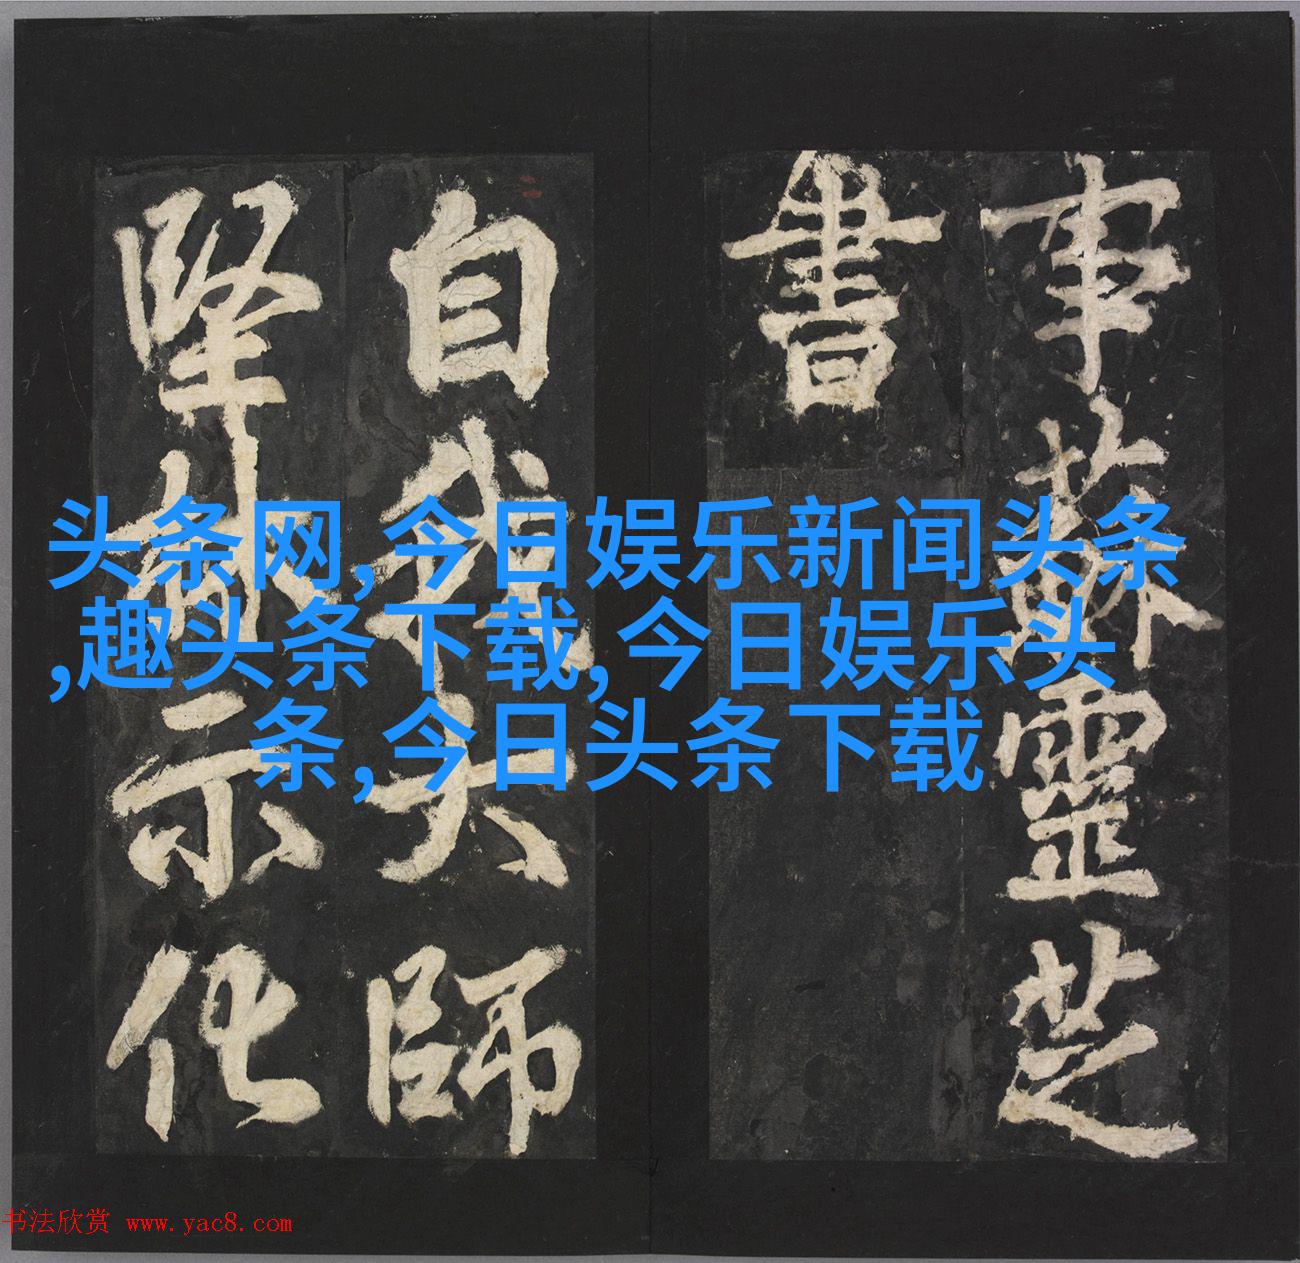 事蘇靈芝
書
自我大師
堅示化
头条网,今日娱乐新闻头条
,趣头条下载,今日娱乐头
条,今日头条下载
书法欣赏 www.yac8.com